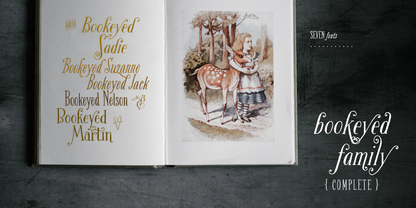 Bookeyed
Sadie
Bookeyed Suzanne
Bookeyed Jack
Bookeyed Nelson
Bookeyed
Martin
SEVEN fonts
bookeyed
family
{ COMPLETE }